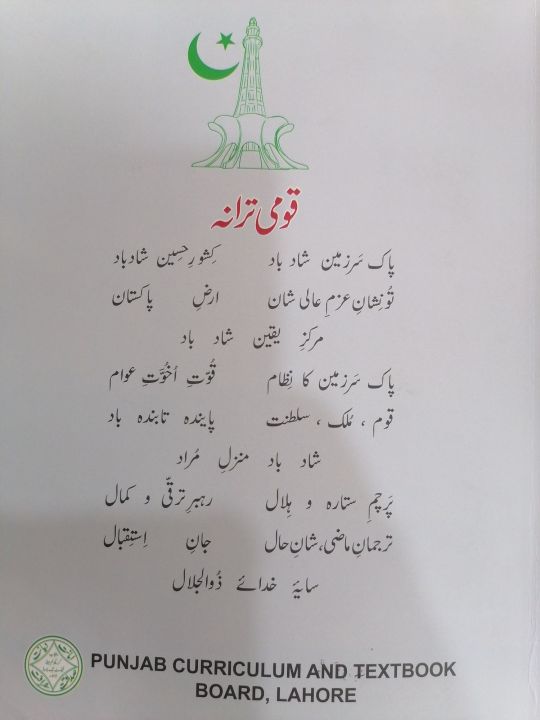 قومی ترانہ
پاک سَرزمین شاد باد کِشورِ حسین شادباد
تُو نِشانِ عزمِ عالی شان ارضِ پاکستان
مرکزِ یقین شاد باد
پاک سَرزمین کا نِظام قُوّتِ اُخُوّتِ عوام
قوم ، مُلک ، سلطنت پایندہ تابندہ باد
شاد باد منزلِ مُراد
پَرچمِ ستارہ و ہِلال رہبرِ ترقّی و کمال
ترجمانِ ماضی، شانِ حال جانِ اِستِقبال
سایۂ خدائے ذُوالجلال
PUNJAB CURRICULUM AND TEXTBOOK
BOARD, LAHORE